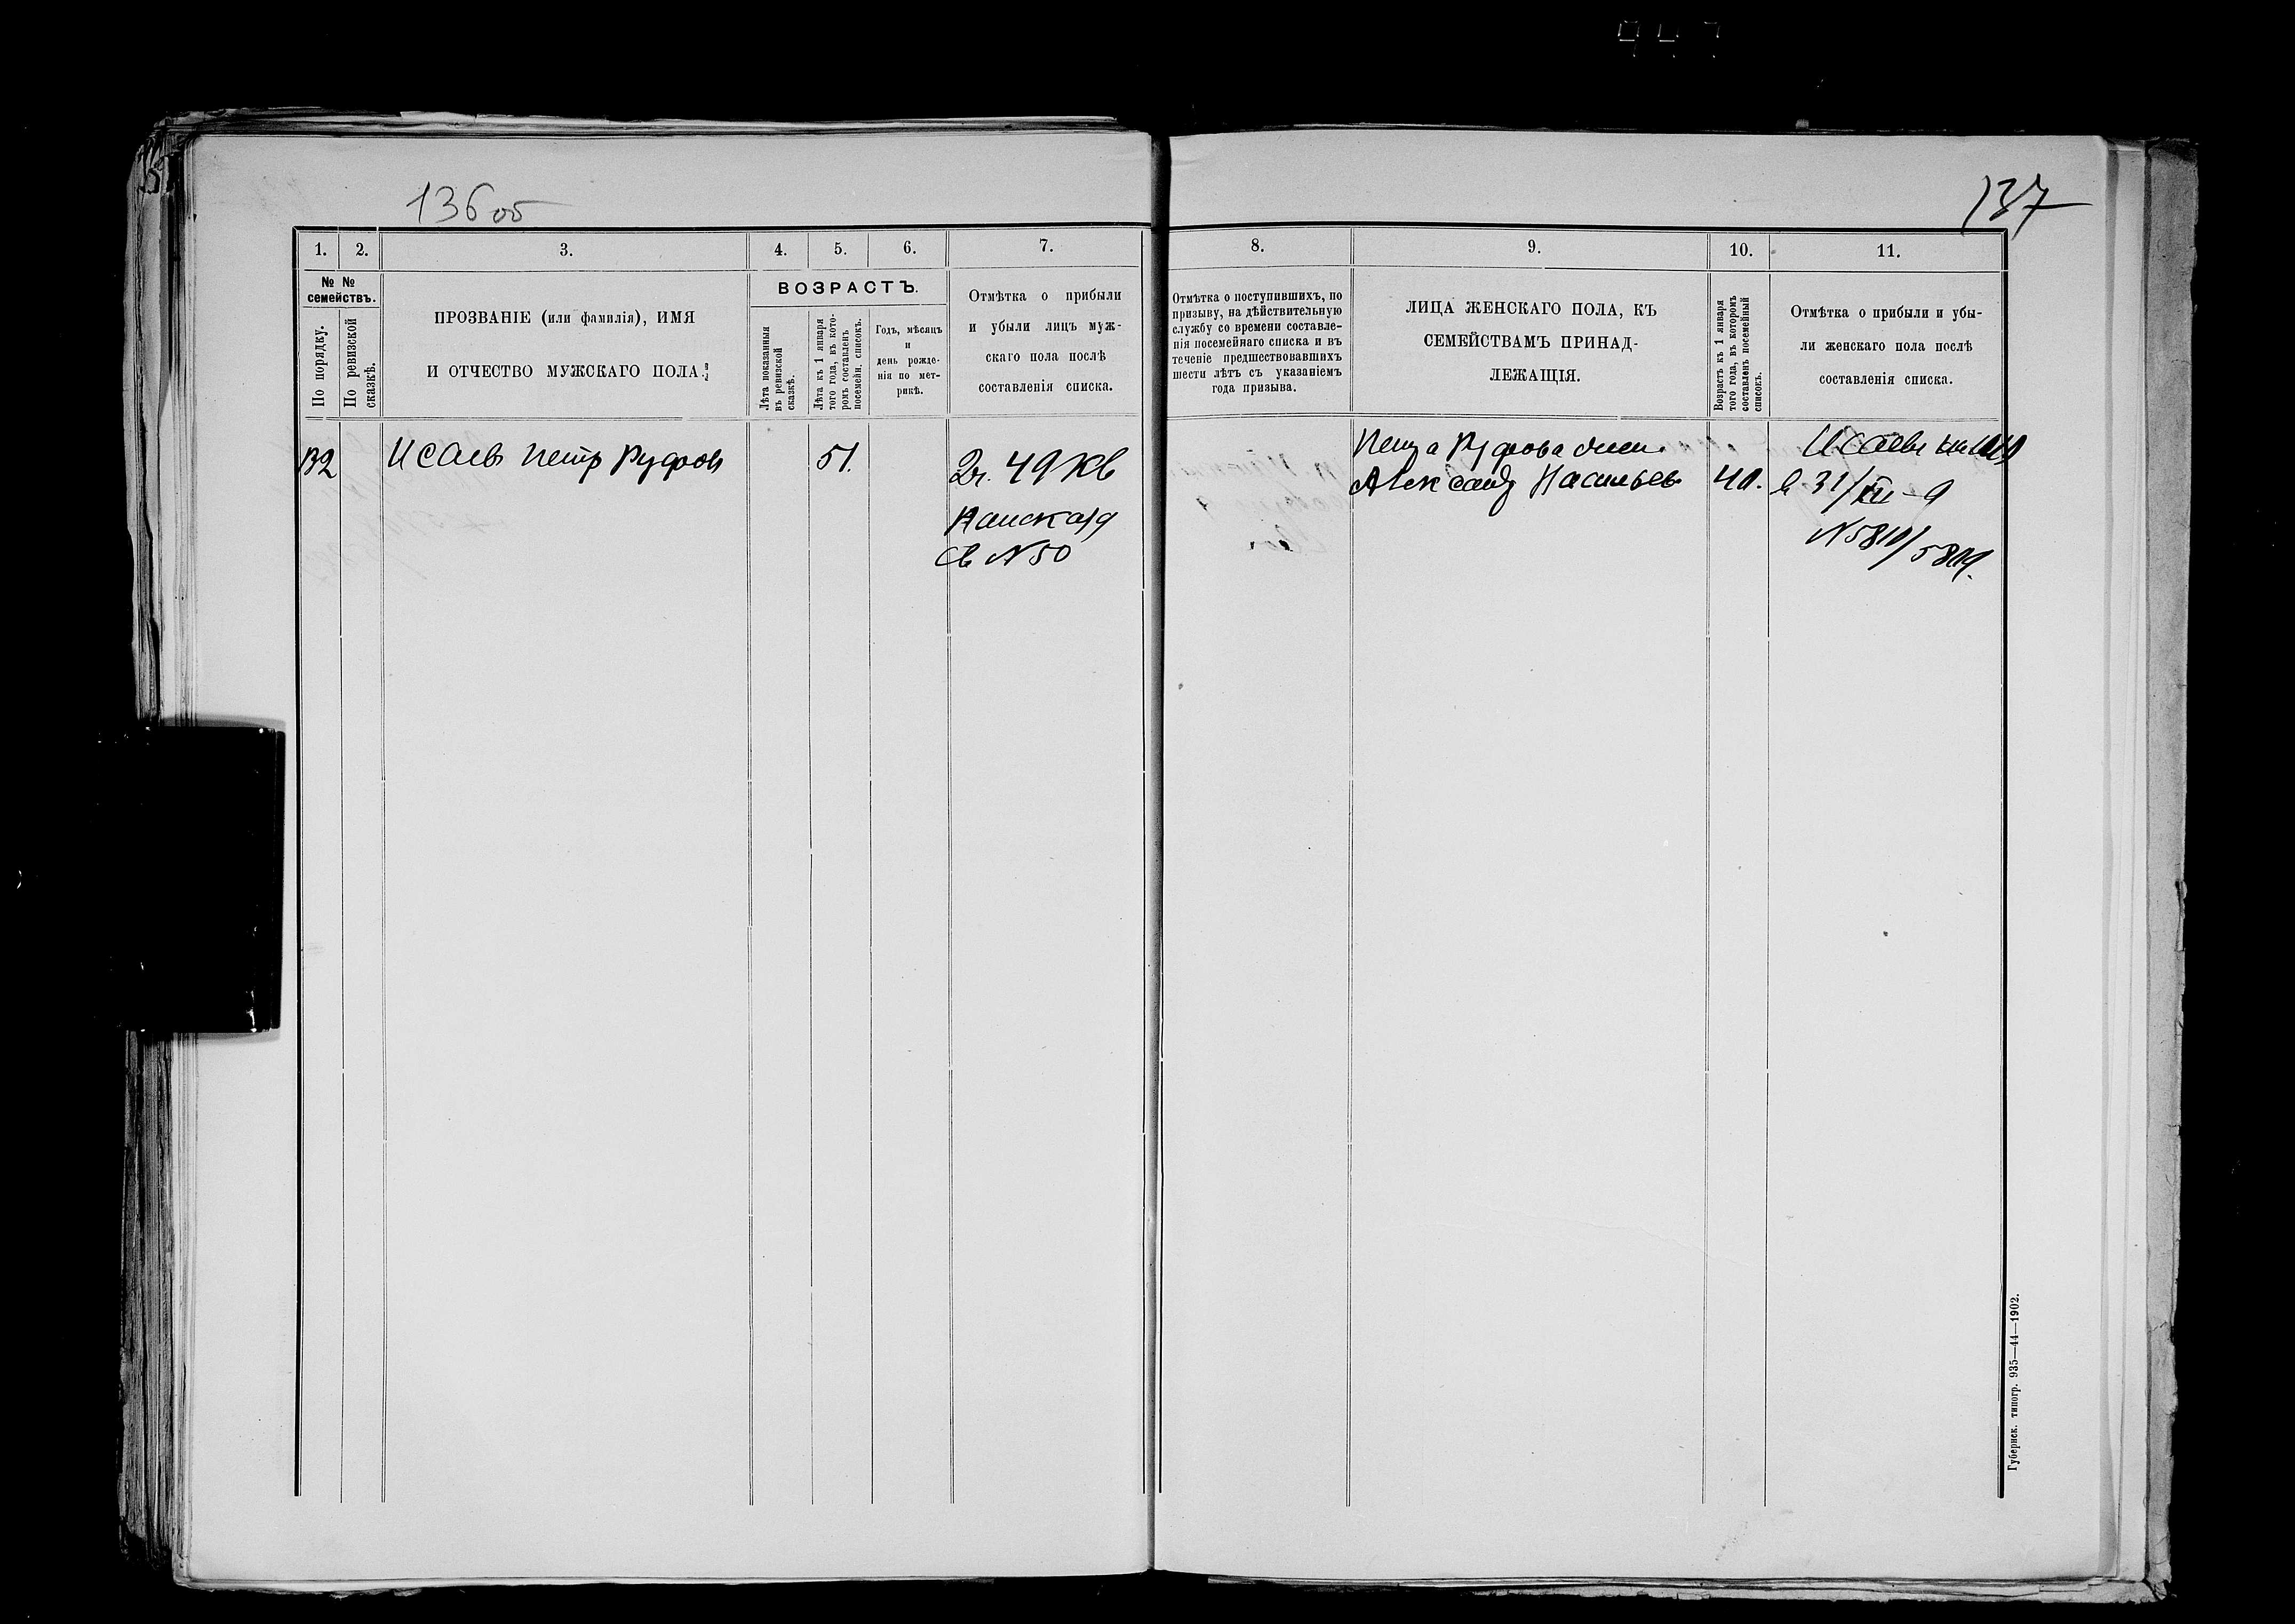 136 об
137
1. 2. 3. 4. 5. 6. 7.
№ №
семействъ.
По порядку.
По ревизской
сказкѣ.
ПРОЗВАНІЕ (или фамилія), ИМЯ
И ОТЧЕСТВО МУЖСКАГО ПОЛА.
ВОЗРАСТЪ.
Лѣта показанныя
въ ревизской
сказкѣ.
Лѣта къ 1 января
того года, въ кото-
ромъ составленъ
посемейн. списокъ.
Годъ, мѣсяцъ
и
день рожде-
нія по мет-
рикѣ.
Отмѣтка о прибыли
и убыли лицъ муж-
скаго пола послѣ
составленія списка.
132 Исаев Петр Руфов 51.
49 кв
св № 50
8. 9. 10. 11.
Отмѣтка о поступившихъ, по
призыву, на дѣйствительную
службу со времени составле-
нія посемейнаго списка и въ
теченіе предшествовавшихъ
шести лѣтъ съ указаніемъ
года призыва.
ЛИЦА ЖЕНСКАГО ПОЛА, КЪ
СЕМЕЙСТВАМЪ ПРИНАД-
ЛЕЖАЩІЯ.
Возрастъ къ 1 января
того года, въ которомъ
составленъ посемейный
списокъ.
Отмѣтка о прибыли и убы-
ли женскаго пола послѣ
составленія списка.
Петра Руфова
40.
31/XII - 9
Губернск. типогр. 935—44—1902.